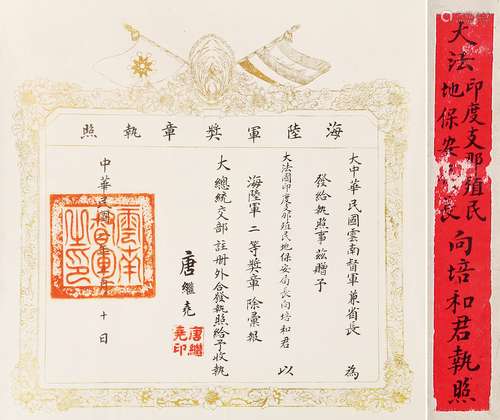 海陸軍獎章執照
大中華民國雲南督軍兼省長 為
發給執照事茲贈予
大法國印度支那殖民地保安局長向培和君 以
海陸軍二等獎章除彙報
大總統交部註冊外合發執照給予收執
唐繼堯
唐繼堯印
中華民國 十日
大法
印度支那殖民
地保安 長
向培和君執照